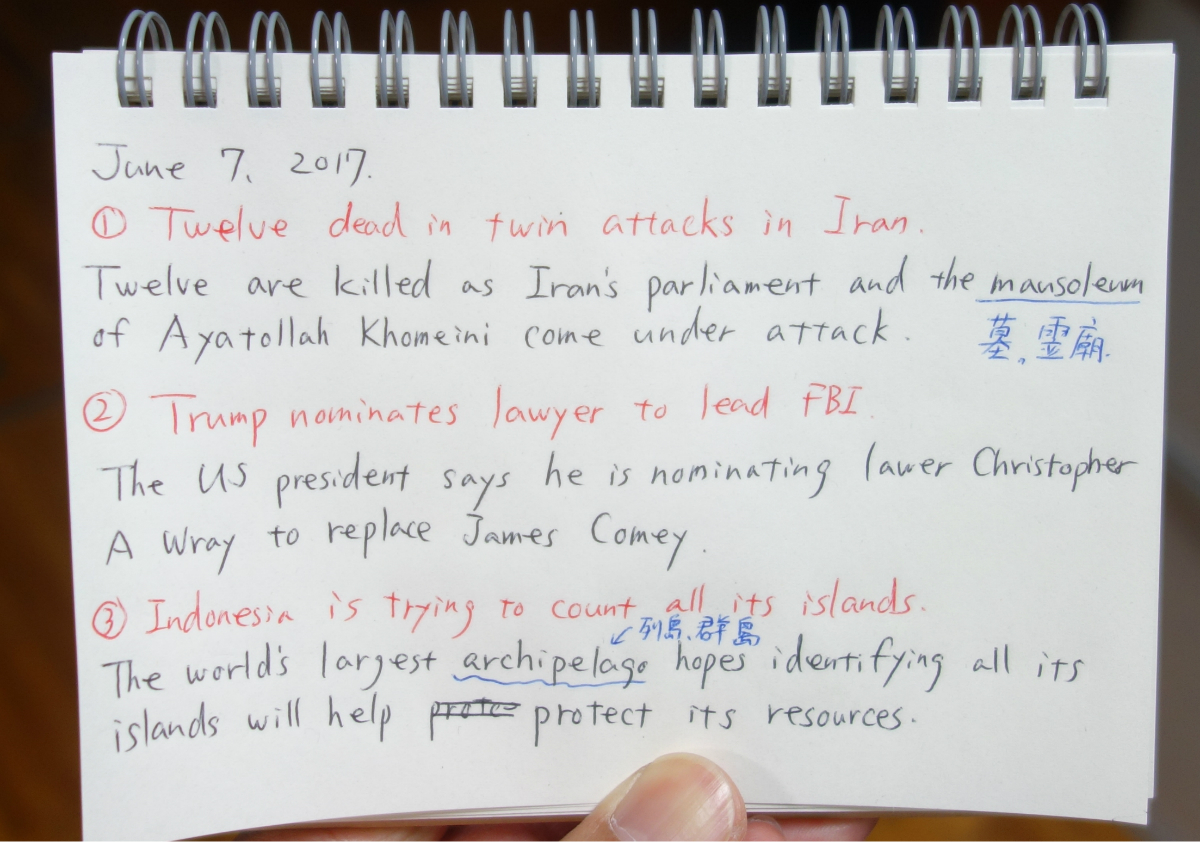 June 7, 2017.
① Twelve dead in twin attacks in Iran.
Twelve are killed as Iran's parliament and the mausoleum
of Ayatollah Khomeini come under attack.
墓、霊廟.
② Trump nominates lawyer to lead FBI.
The US president says he is nominating lawer Christopher
A Wray to replace James Comey.
③ Indonesia is trying to count all its islands.
↙列島、群島
The world's largest archipelago hopes identifying all its
islands will help protec protect its resources.